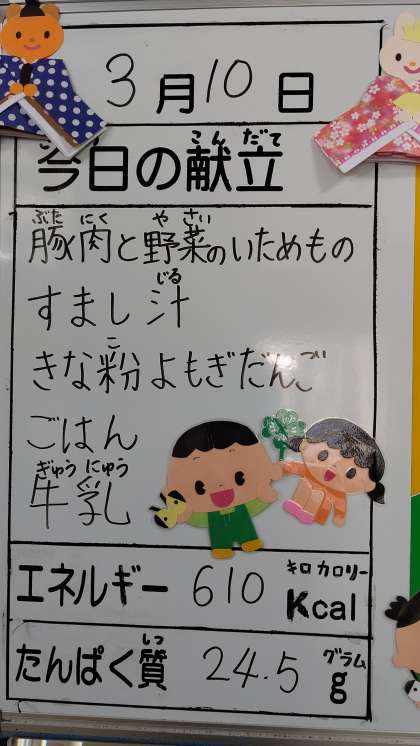 3月10日
今日の献立
こんだて
豚肉と野菜のいためもの
ぶたにくやさい
すまし汁
じる
きな粉よもぎだんご
こ
ごはん
牛乳
ぎゅうにゅう
エネルギー 610 Kcal
キロカロリー
たんぱく質 24.5 g
しつ
グラム